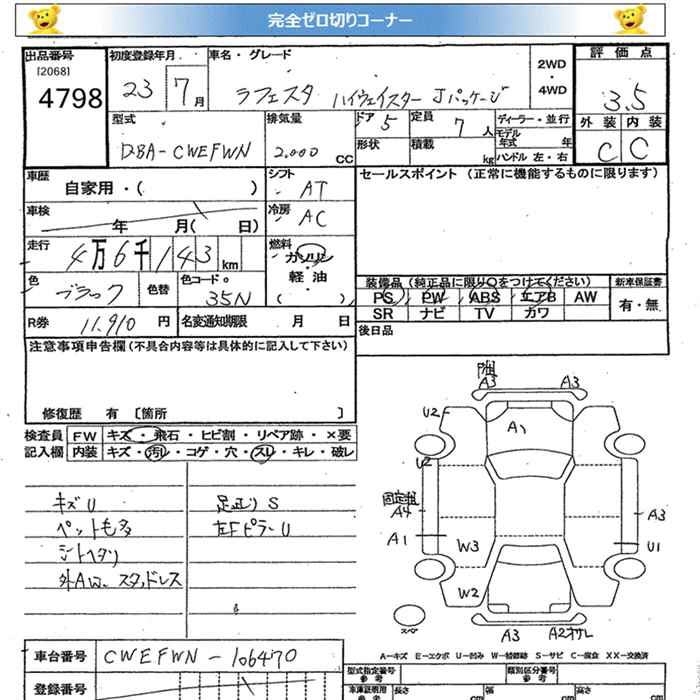 完全ゼロ切りコーナー
出品番号 初度登録年月 車名・グレード 2WD・4WD 評価点
[2068]
4798 23 7月 ラフェスタ ハイウェイスター Jパッケージ 3.5
型式 排気量 ドア 5 定員 7人 ディーラー・並行 外装 内装
DBA-CWEFWN 2,000 CC 形状 積載 kg モデル年式 年 C C
ハンドル 左・右
車歴 シフト セールスポイント (正常に機能するものに限ります)
自家用・( ) AT
車検 年 月( 日) 冷房 AC
走行 4万6千143km 燃料 ガソリン・軽油 ( )
色 ブラック 色替 色コード 35N
装備品 (純正品に限り○をつけてください) 新車保証書
PS PW ABS エアB AW 有・無
SR ナビ TV カワ
R券 11,910円 名変通知期限 月 日 後日品
注意事項申告欄 (不具合内容等は具体的に記入して下さい)
修復歴 有 〔箇所 〕
検査員 FW キズ・飛石・ヒビ割・リペア跡・×要
記入欄 内装 キズ・汚レ・コゲ・穴・スレ・キレ・破レ
キズU
ペット毛多
シートヘタリ
外AW、スタッドレス
足廻りS
左FピラーU
A3 A3
U2
A
U2
固定粗
A4 A3
A1 U1
W3
W2
スペア
A3 A2オサレ
A－キズ E－エクボ U－凹み W－補修跡 S－サビ C－腐食 XX－交換済
車台番号 CWEFWN-106470
登録番号
型式指定番号 参考 類別区分番号 参考
車庫証明用 参考 長さ cm 幅 cm 高さ cm